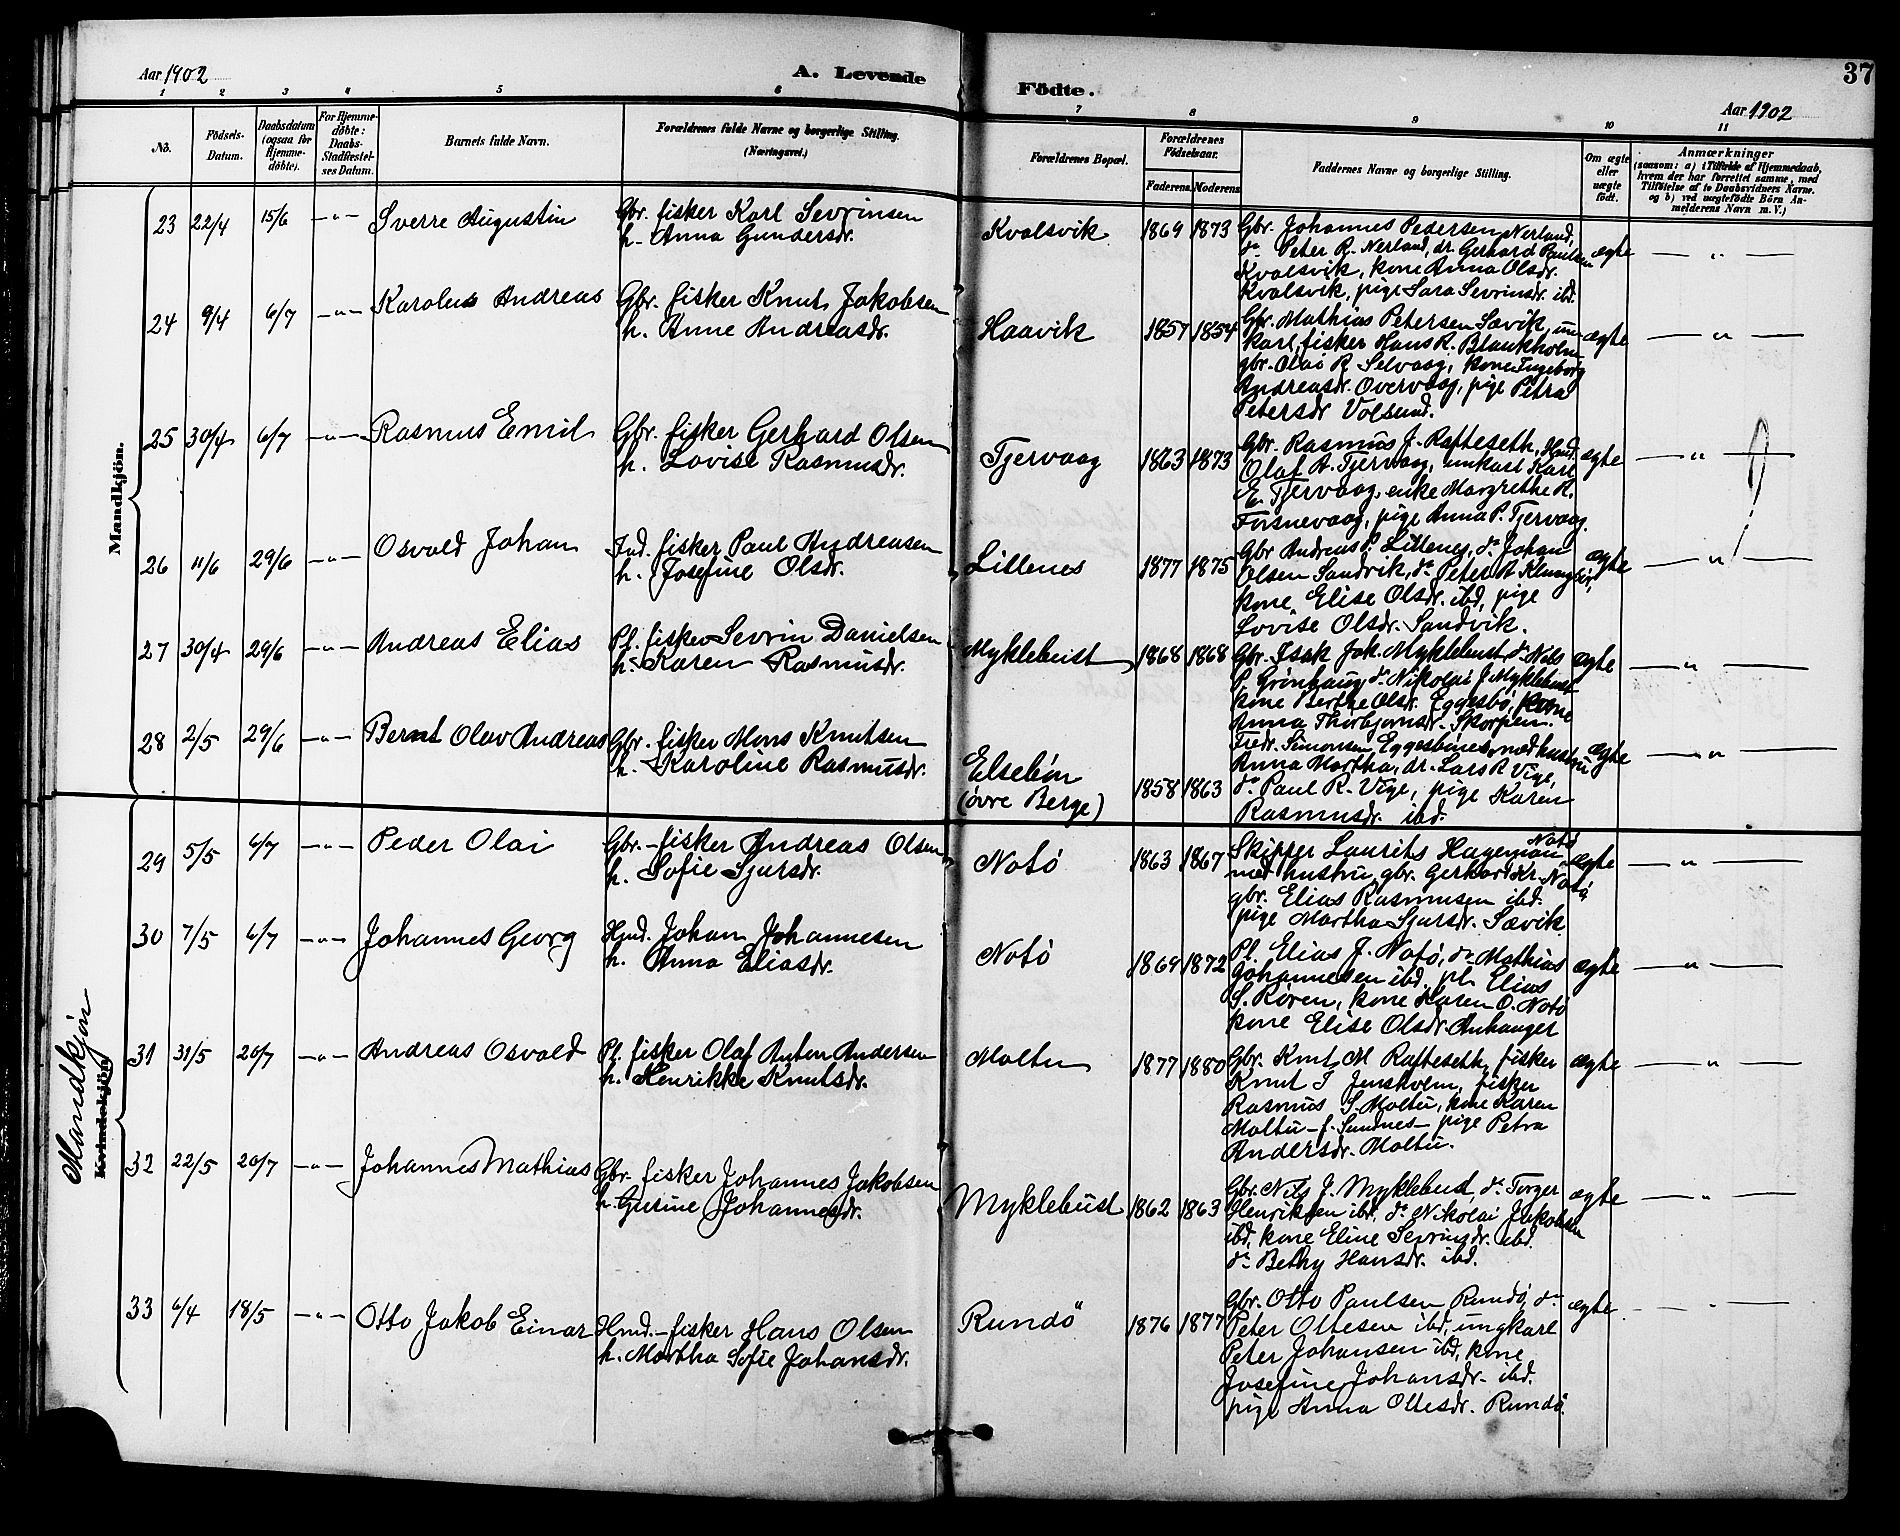 Aar 1902
A. Levende
Födte.
37
Aar 1902
1 2 3 4 5 6 7 8 9 10 11
No.
Födsels-
Datum.
Daabsdatum
(ogsaa for
Hjemme-
döbte).
For Hjemme-
döbte:
Daabs-
Stadfæstel-
ses Datum.
Barnets fulde Navn.
Forældrenes fulde Navne og borgerlige Stilling.
(Næringsvei.)
Forældrenes Bopæl.
Forældrenes
Födselsaar.
Faderens. Moderens.
Faddernes Navne og borgerlige Stilling.
Om ægte
eller
uægte
födt.
Anmærkninger
(saasom: a) i Tilfælde af Hjemmedaab,
hvem der har forrettet samme, med
Tilföielse af to Daabsvidners Navne.
og b) ved uægtefödte Börn An-
melderens Navn m. V.)
Mandkjön.
23 22/4 15/6 -"- Sverre Augustin
Gbr. fisker Karl Sevrinsen
h. Anna Gundersdr.
Kvalsvik 1869 1873
Gbr. Johannes Pedersen Nerland,
do Peter R. Nerland, dr. Gerhard Paulsen
Kvalsvik, kone Anna Olsdr.
Kvalsvik, pige Sara Sevrinsdr. ibd.
ægte — " —
24 9/4 6/7 -"- Karolus Andreas
Gbr. fisker Knut Jakobsen
h. Anne Andreasdr.
Haavik 1857 1854
Gbr. Mathias Petersen Sævik, un
karl, fisker Hans R. Blankholm
gbr. Olai R. Selvaag, kone Ingeborg
Andreasdr. Overvaag, pige Petra
Petersdr Volsund.
ægte — " —
25 30/4 6/7 -"- Rasmus Emil
Gbr. fisker Gerhard Olsen
h. Lovise Rasmusdr.
Tjervaag 1863 1873
Gbr. Rasmus J. Rafteseth, Hmd.
Olaf A. Tjervaag, unkarl Karl
E. Tjervaag, enke Margrethe R.
Fosnevaag, pige Anna P. Tjervaag.
ægte — " —
26 11/6 29/6 -"- Osvald Johan
Ind. fisker Paul Andreasen
h. Josefine Olsdr.
Lillenes 1877 1875
Gbr Andreas P. Lillenes, do Johan
Olsen Sandvik, do Peter A Klungsör,
kone Elise Olsdr. ibd, pige
Lovise Olsdr. Sandvik.
ægte — " —
27 30/4 29/6 -"- Andreas Elias
Pl. fisker Sevrin Danielsen
h. Karen Rasmusdr.
Myklebust 1868 1868
Gbr. Isak Jak. Myklebust, do Nils
P. Grönhaug, do Nikolai J Myklebust
kone Berthe Olsdr. Eggesbö, kone
Anna Thorbjørnsdr. Skorpen.
ægte — " —
28 2/5 29/6 -"- Bernt Olav Andreas
Gbr. fisker Mons Knutsen
h. Karoline Rasmusdr.
Elsebøn
(övre Berge) 1858 1863
Fredr. Simonsen Eggesbönes med hustru
Anna Martha, dr. Lars R Vige,
do Paul R. Vige, pige Karen
Rasmusdr. ibd.
ægte — " —
Mandkjön
Kvindekjön.
29 5/5 6/7 -"- Peder Olai
Gbr. - fisker Andreas Olsen
h. Sofie Sjursdr.
Notö 1863 1867
Skipper Laurits Hageman Notö
med hustru, gbr. Gerhard Kr. Notö
gbr. Elias Rasmusen ibd.
pige Martha Sjursdr. Sævik.
ægte — " —
30 7/5 6/7 -"- Johannes Georg
Hmd. Johan Johannesen
h. Anna Eliasdr.
Notö 1869 1872
Pl. Elias J. Notö, do Mathias
Johannesen ibd, pl. Elias
S. Røren, kone Karen O. Notö
kone Elise Olsdr. Anhanger
ægte — " —
31 31/5 20/7 -"- Andreas Osvald
Pl. fisker Olaf Anton Andersen
h. Henrikke Knutsdr.
Moltu 1877 1880
Gbr. Knut M Rafteseth, fisker
Knut J Jensholm, fisker
Rasmus S. Moltu, kone Karen
Moltu - f. Sundnes - pige Petra
Andersdr. Moltu.
ægte — " —
32 22/5 20/7 -"- Johannes Mathias
Gbr. fisker Johannes Jakobsen
h. Gurine Johannesdr.
Myklebust 1862 1863
Gbr. Nils J. Myklebust, do Torger
Henriksen ibd, do Nikolai Jakobsen
ibd, kone Eline Sevrinsdr. ibd.
do Bethy Hansdr. ibd.
ægte — " —
33 6/4 18/5 -"- Otto Jakob Einar
Hmd. - fisker Hans Olsen
h. Martha Sofie Johansdr.
Rundö 1876 1877
Gbr. Otto Paulsen Rundö, do
Peter Ottesen ibd, ungkarl
Peter Johansen ibd, kone
Josefine Johansdr. ibd.
pige Anna Ottesdr. Rundö.
ægte — " —